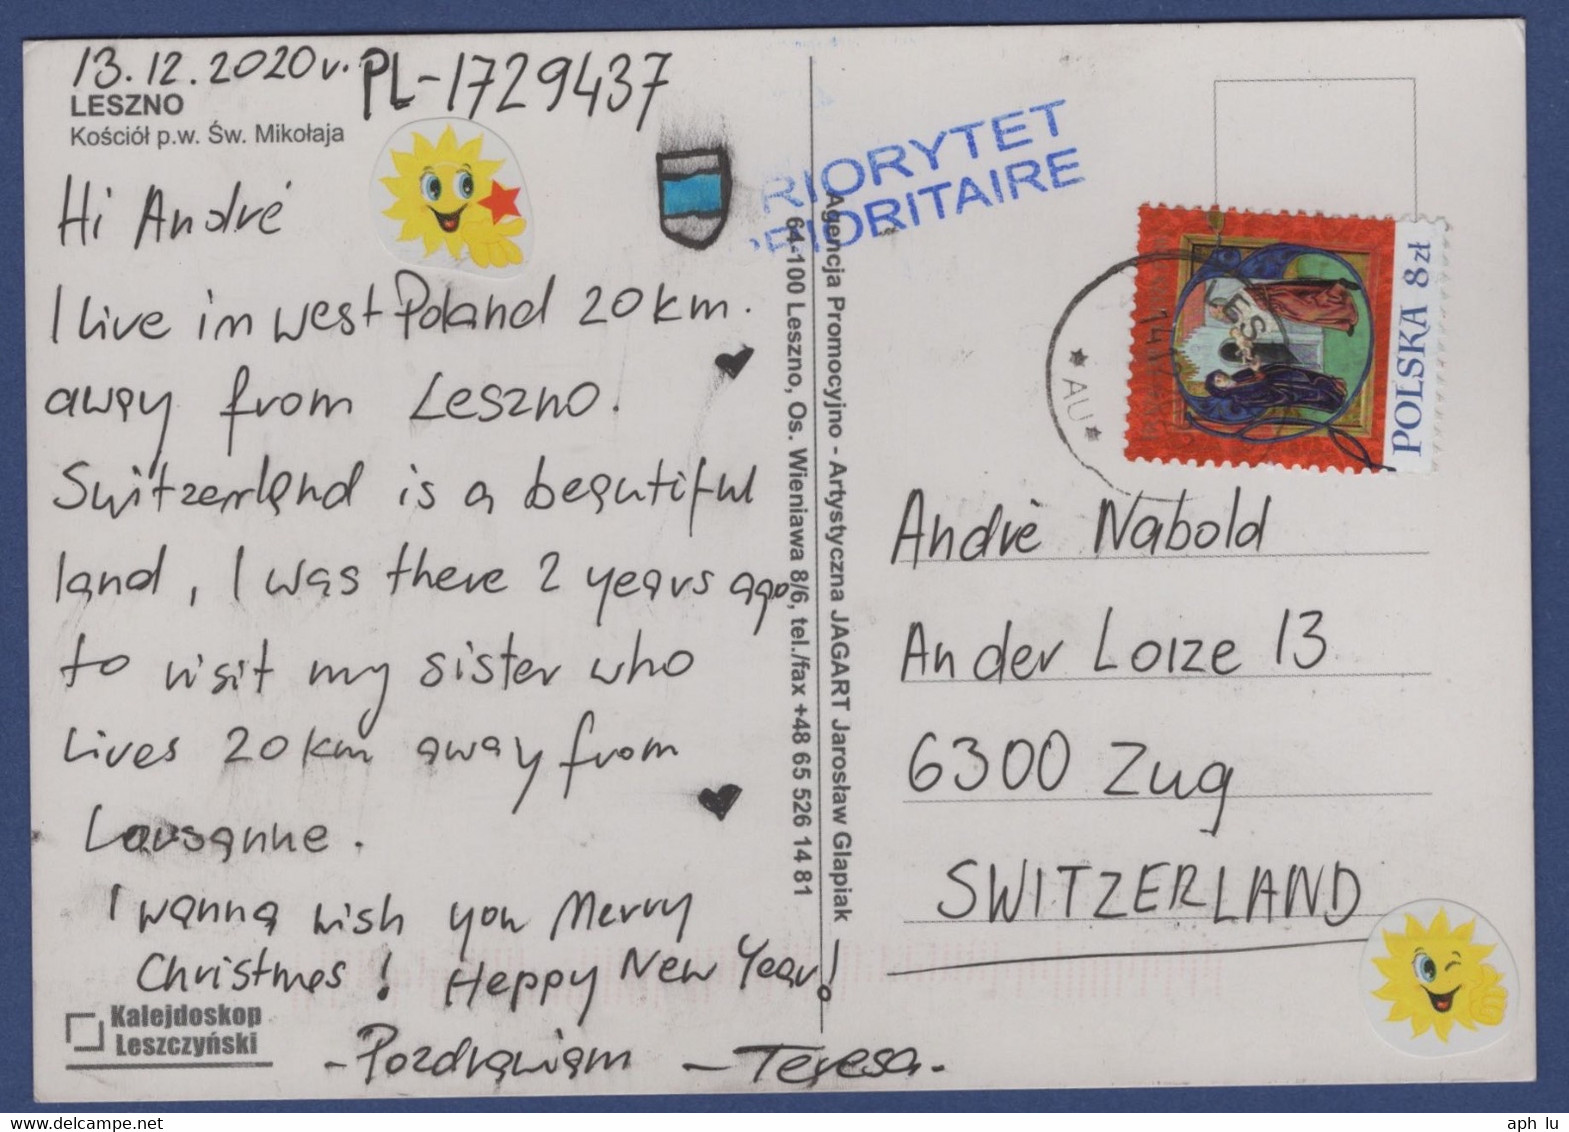 13.12.2020r. PL-1729437
LESZNO
Kościół p.w. Św. Mikołaja
Hi André
I live in west Poland 20 km.
away from Leszno.
Switzerland is a beautiful
land, I was there 2 years ago
to visit my sister who
lives 20 km away from
Lausanne.
I wanna wish you Merry
Christmes! Heppy New Year!
- Pozdrawiam - Teresa.
Kalejdoskop
Leszczyński
Agencja Promocyjno - Artystyczna JAGART Jarosław Glapiak
64-100 Leszno, Os. Wieniawa 8/6, tel./fax +48 65 526 14 81
RIORYTET
PRIORITAIRE
POLSKA 8 zł
* AU *
Andrè Nabold
An der Lorze 13
6300 Zug
SWITZERLAND
aph lu